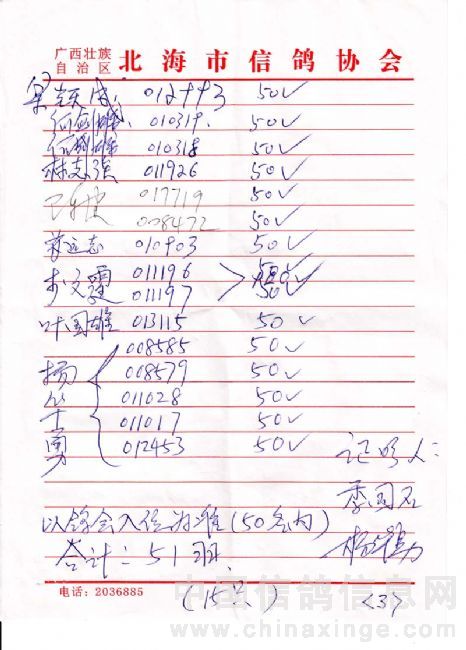 广西壮族
自治区
北海市信鸽协会
梁颖 012993 50√
何剑雄 010319 50√
何剑雄 010318 50√
林志强 011926 50√
017719 50√
008472 50√
远志 010903 50√
文霆 011196
011197 50√
叶国雄 013115 50√
008585 50√
杨 008579 50√
011028 50√
士 011017 50√
勇 012453 50√
证明人:
季国石
以鸽会入信为准(50名内)
合计:51羽.
杨雄勇
电话:2036885
(15只) <3>
中国信鸽信息网
www.chinaxinge.com